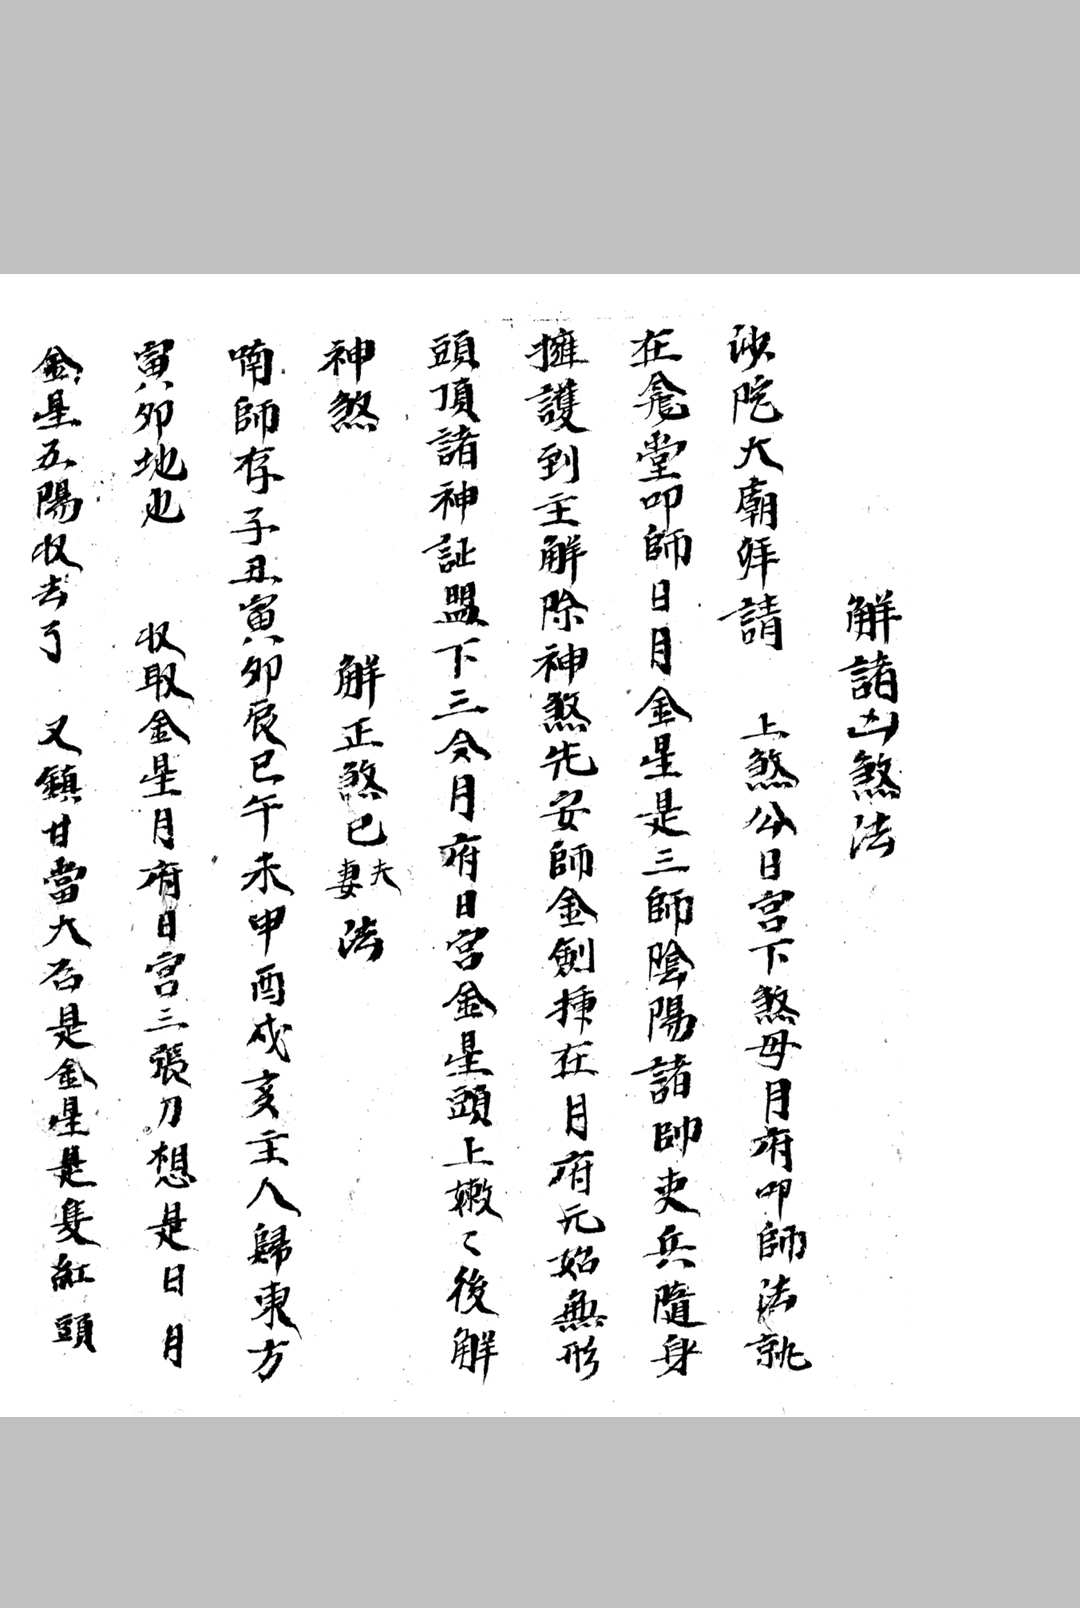 解諸凶煞法
沙陀大廟拜請　上煞公日宮下煞母月府叩師法就
在龛堂叩師日月金星是三師陰陽諸帥吏兵隨身
擁護到主解除神煞先安師金劍揷在月府元始無形
頭頂諸神証盟下三令月府日宮金星頭上嫩々後解
神煞　解正煞已夫妻法
喃師存子丑寅卯辰巳午未申酉戌亥主人歸東方
寅卯地也　收取金星月府日宮三張刀想是日月
金星五陽收去了　又鎮甘當大石是金星是隻紅頭